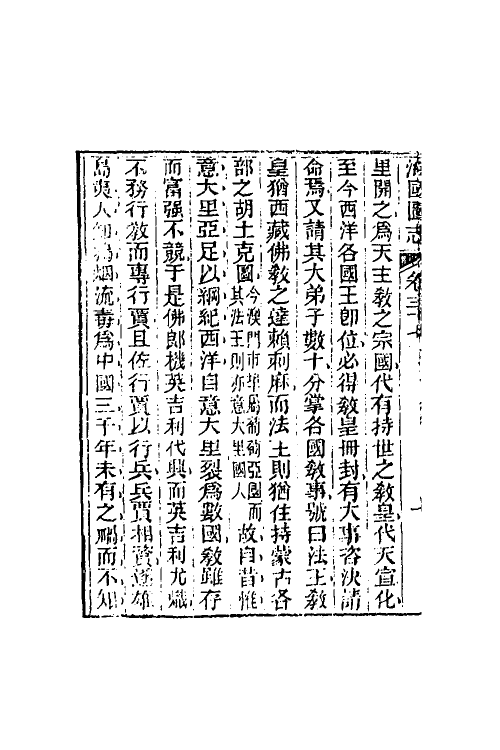 海國圖志 卷三十
里開之爲天主敎之宗國代有持世之敎皇代天宣化
至今西洋各國王卽位必得敎皇冊封有大事咨決請
命焉又請其大弟子數十分掌各國敎事號曰法王敎
皇猶西藏佛敎之達賴剌麻而法王則猶住持蒙古各
部之胡土克圖今澳門市埠屬葡萄亞國而其法王則亦意大里國人故自昔惟
意大里亞足以綱紀西洋自意大里裂爲數國敎雖存
而富强不競于是佛郎機英吉利代興而英吉利尤熾
不務行敎而專行賈且佐行賈以行兵兵賈相資遂雄
島夷人 烟流毒爲中國三千年未有之禍而不知